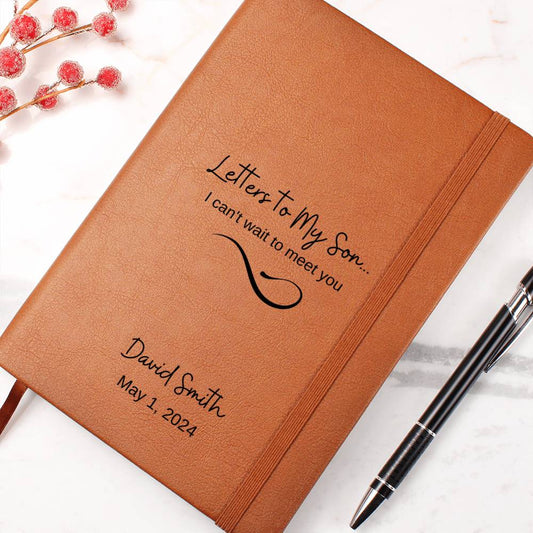 Letters To My Son...
I can't wait to meet you
David Smith
May 1, 2024